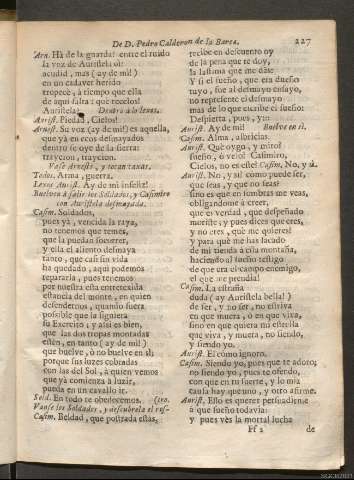 De D. Pedro Calderon de la Barca.
227
Arn. Há de la guarda! entre el ruido
la voz de Auristela oì:
acudid, mas (ay de mi!)
en un cadaver herido
tropecè, à tiempo que ella
de aqui falta: que rezelos!
Auristela. Dentro à lo lexos.
Aurist. Piedad, Cielos!
Arnest. Su voz (ay de mi!) es aquella,
que yà en ecos desmayados
dentro se oye de la sierra:
traycion, traycion.
Vase Arnesto, y tocan caxas.
Todos. Arma, guerra.
Lexos Aurist. Ay de mi infeliz!
Buelven à salir los Soldados, y Casimiro
con Auristela desmayada.
Casim. Soldados,
pues yà, vencida la raya,
no tenemos que temer,
que la puedan socorrer,
y ella el aliento desmaya
tanto, que casi sin vida
ha quedado, aqui podemos
repararla, pues tenemos
por nuestra esta entretexida
estancia del monte, en quien
defendernos, quando fuera
possible que la siguiera
su Exercito; y assi es bien,
que las dos tropas montadas
estèn, en tanto (ay de mi!)
que buelve, ò no buelve en sì,
porque sus luzes cobradas
con las del Sol, à quien vemos
que yà comienza à luzir,
pueda en un cavallo ir.
Sold. En todo te obedecemos. (tro.
Vanse los Soldados, y descubrela el ros-
Casim. Beldad, que postrada estàs,
recibe en descuento oy
de la pena que te doy,
la lastima que me dàs:
Y si el sueño, que era dueño
tuyo, fue al desmayo ensayo,
no represente el desmayo
mas de lo que escribe el sueño:
Despierta, pues, y in
Aurist. Ay de mi! Buelve en sì.
Casim. Alma, albricias.
Aurist. Què oygo, y miro!
sueño, ò velo! Casimiro,
Cielos, no es este? Casim. No, y sì.
Aurist. No, y sì! como puede ser,
que seas, y que no seas?
sino es que en sombras me veas,
obligandome à creer,
que es verdad, que despeñado
moriste; y pues dices que eres,
y no eres, què me quieres?
y para què me has sacado
de mi tienda à esta montaña,
haciendo al sueño testigo
de que era el campo enemigo,
el que me prendia!
Casim. La estraña
duda (ay Auristela bella!)
de ser, y no ser, estriva
en que muera, ò en que viva,
sino en que quiera mi estrella
que viva, y muera, no siendo,
y siendo yo.
Aurist. El còmo ignoro.
Casim. Siendo yo, pues que te adoro;
no siendo yo, pues te ofendo,
con que en tu suerte, y lo mia
causa hay que uno, y otro afirme.
Aurist. Esso es querer persuadirme
à que sueño todavia:
y pues vès la mortal lucha
Ff 2
de